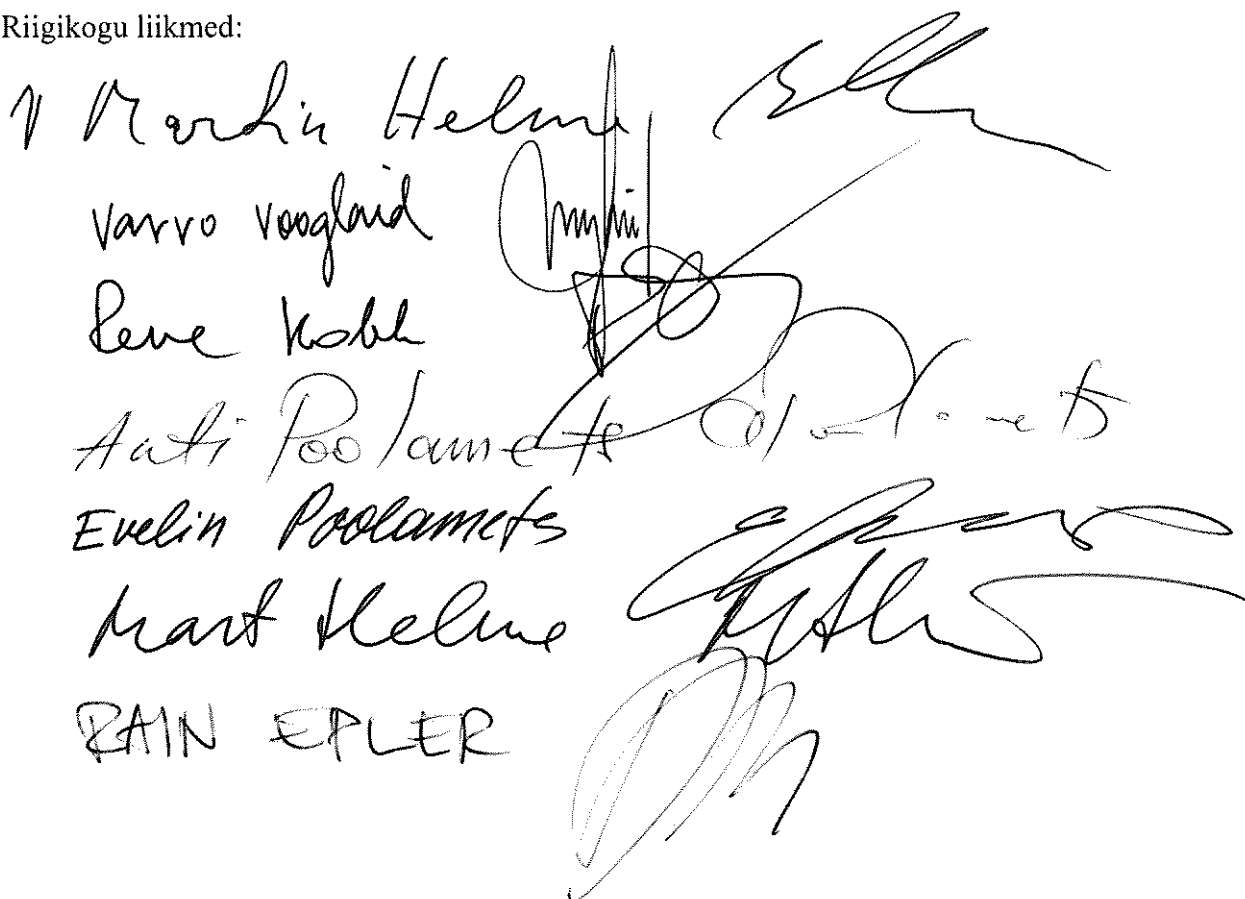 Riigikogu liikmed:
1 Martin Helme
Varvo Vooglaid
Rene Kokk
Anti Poolamets
Evelin Poolamets
Mart Helme
RAIN EPLER